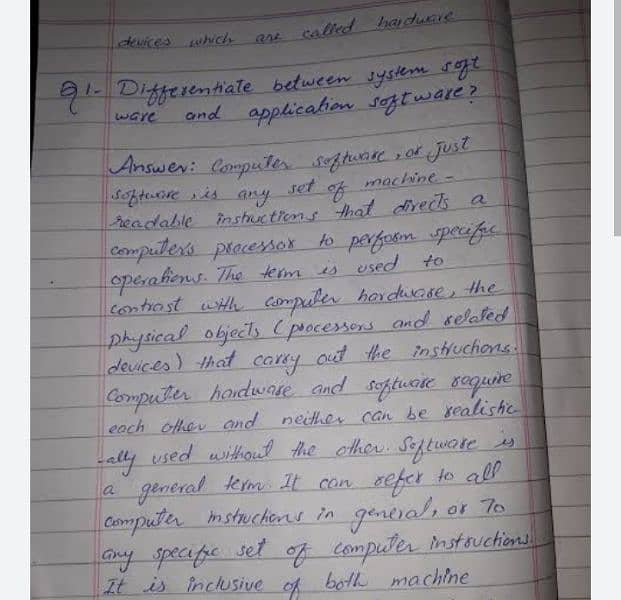 devices which are called hardware
Q1- Differentiate between system soft
ware and application software?
Answer: Computer software, or just
software, is any set of machine-
readable instructions that directs a
computers processor to perform specific
operations. The term is used to
contrast with computer hardware, the
physical objects (processors and related
devices) that carry out the instructions.
Computer hardware and software require
each other and neither can be realistic
-ally used without the other. Software is
a general term. It can refer to all
computer instructions in general, or To
any specific set of computer instructions.
It is inclusive of both machine